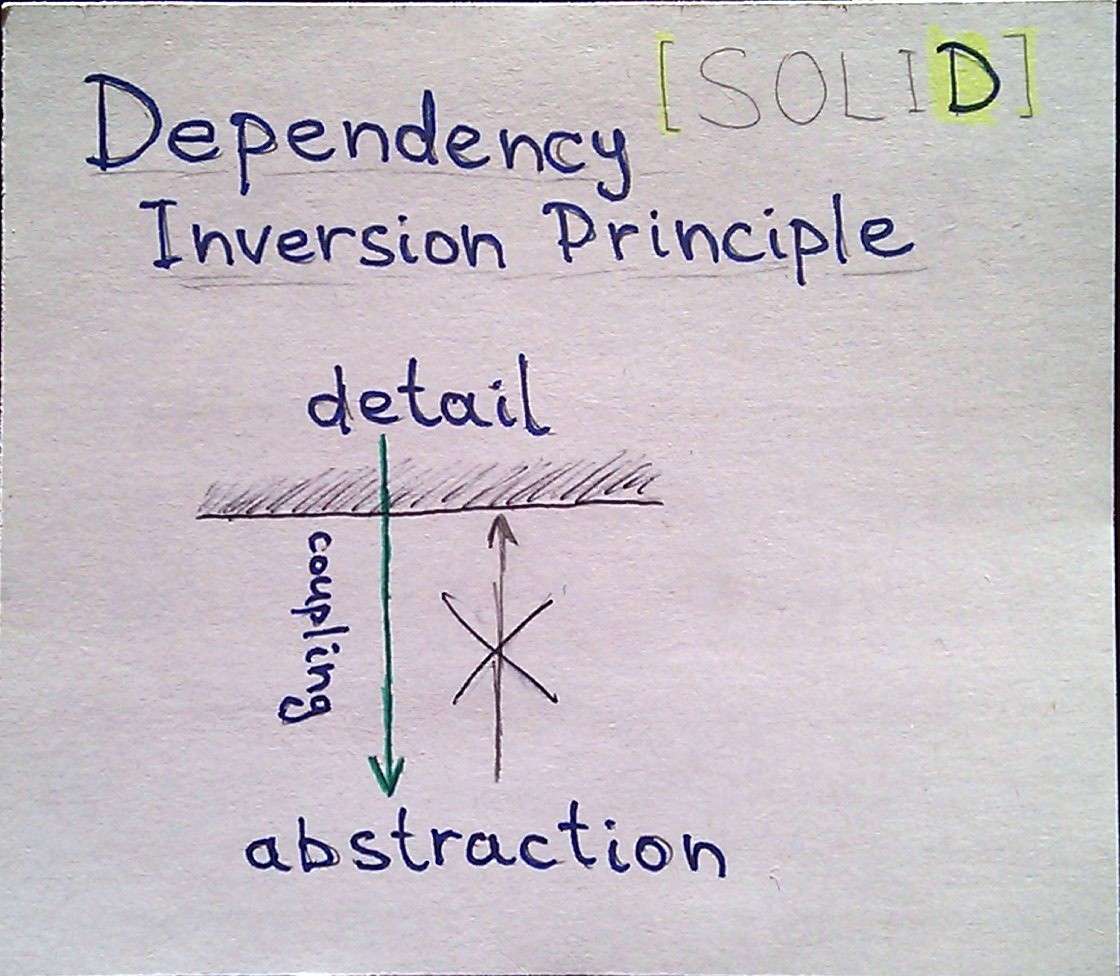 [SOLID]
Dependency
Inversion Principle
detail
coupling
abstraction